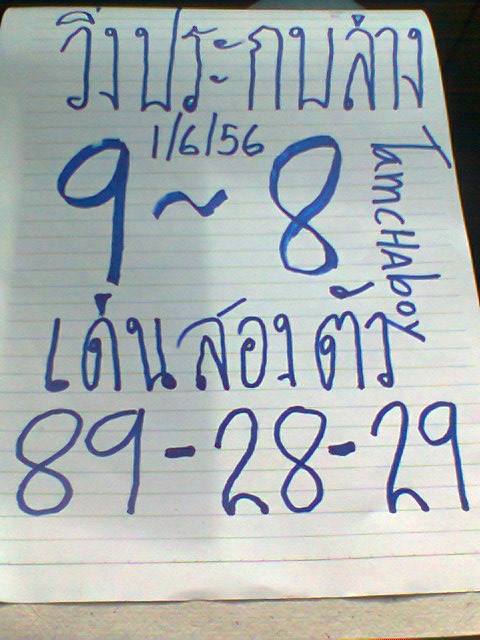 วิ่งประกบล่าง
1/6/56
9~8
TamcHAboy
เด่นสองตัว
89-28-29